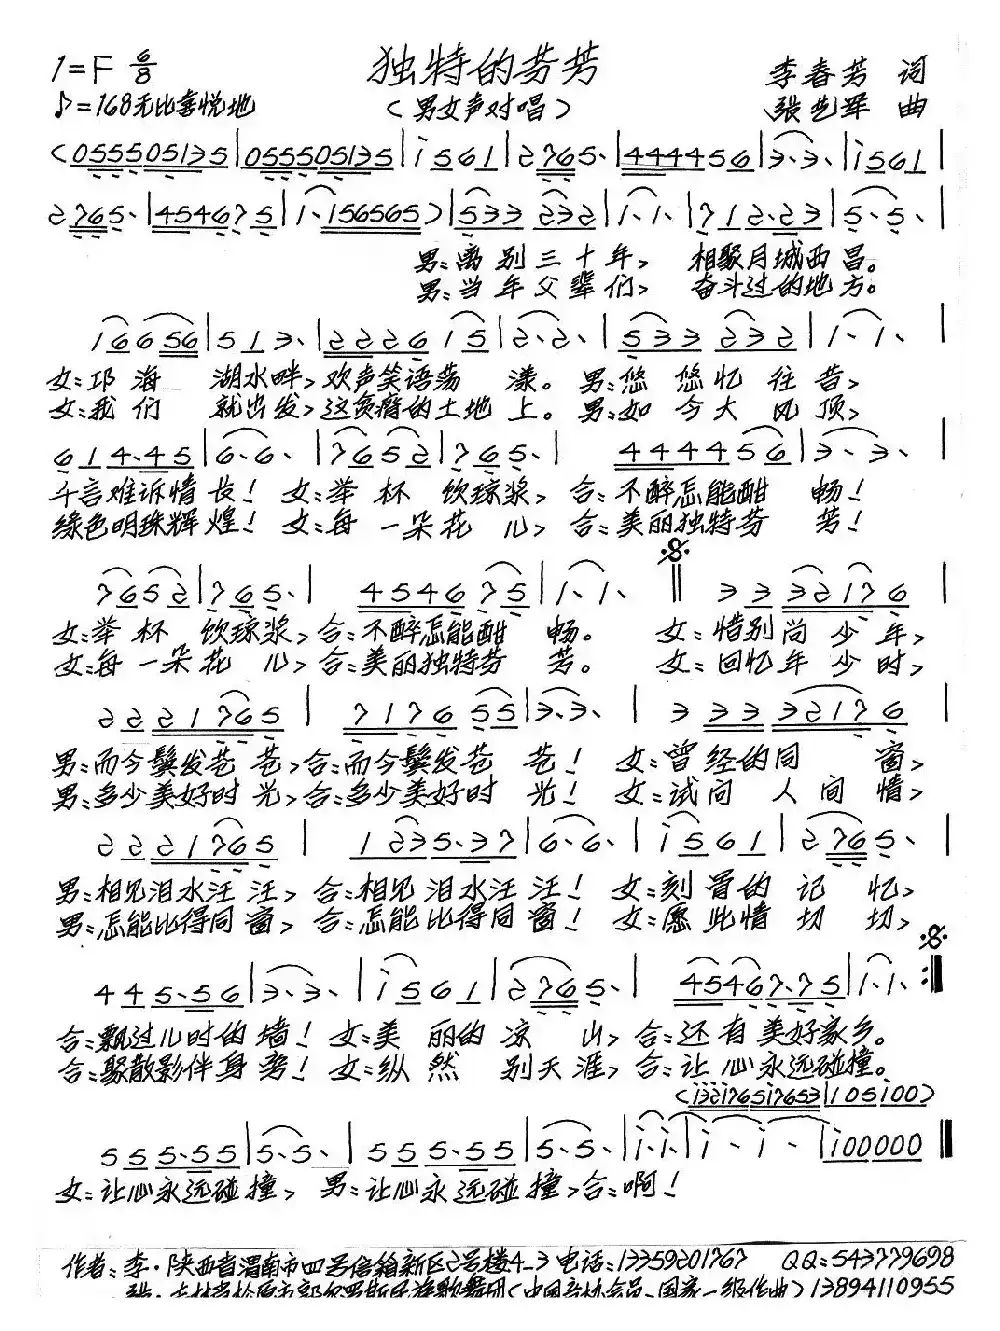 1=F 6/8 独特的芬芳 李春芳 词
♪=168无比喜悦地 (男女声对唱) 张艺军 曲
(055505135|055505135|i561|2765.|4444456|3.3.|i561|
2765.|454675|1.156565)|533 232|1.1.|712.23|5.5.|
男:离别三十年, 相聚月城西昌。
男:当年父辈们, 奋斗过的地方。
16656|513.|2226 i5|2.2.|533 232|1.1.|
女:邛海 湖水畔,欢声笑语荡漾。男:悠悠忆往昔,
女:我们 就出发,这贫瘠的土地上。男:如今大凤顶,
614.45|6.6.|7652|765.|4444456|3.3.|
千言难诉情长!女:举杯饮琼浆,合:不醉怎能酣畅!
绿色明珠辉煌!女:每一朵花儿,合:美丽独特芬芳!
7652|765.|454675|1.1.‖33 32176|
女:举杯饮琼浆,合:不醉怎能酣畅。 女:惜别尚少年,
女:每一朵花儿,合:美丽独特芬芳。 女:回忆年少时,
2221765|7176 55|3.3.|33332176|
男:而今鬓发苍苍,合:而今鬓发苍苍!女:曾经的同窗,
男:多少美好时光,合:多少美好时光!女:试问人间情,
2221765|1235.37|6.6.|i561|2765.|
男:相见泪水汪汪,合:相见泪水汪汪!女:刻骨的记忆,
男:怎能比得同窗,合:怎能比得同窗!女:愿此情切切,
445.56|3.3.|i561|2765.|45467.75|1.1.:‖
合:飘过儿时的墙!女:美丽的凉山,合:还有美好家乡。
合:聚散影伴身旁!女:纵然别天涯,合:让心永远碰撞。
(i32i765i7653|105i00)
555.55|5.5.|555.55|5.5.|i.i.|i.i.|i00000‖
女:让心永远碰撞,男:让心永远碰撞,合:啊!
作者:李·陕西省渭南市四号信箱新区2号楼4-3 电话:13359201767 QQ:543779698
张:吉林省松原市郭尔罗斯民族歌舞团(中国音协会员、国家一级作曲)13894110955